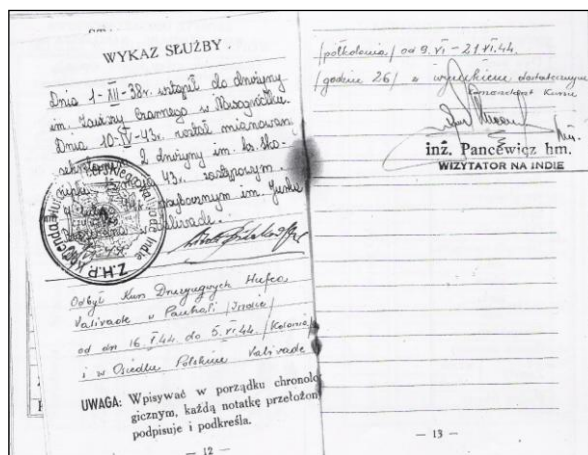 WYKAZ SŁUŻBY.
Dnia 1-XII-38r. wstąpił do drużyny
im. Zawiszy Czarnego w Nowogródku.
Dnia 10-IV-43r. został mianowan
sekretarzem 2 drużyny im. ks. Sko-
43r. zastępowym.
przybocznym im. Jurka
w Valivade.
Z.H.P. Indie
Odbył Kurs Drużynowych Hufca
Valivade w Panhali /Indie/
od dn 16.V.44. do 5.VI.44. /Kolonia/
i w Osiedlu Polskim Valivade
UWAGA: Wpisywać w porządku chronolo
gicznym, każdą notatkę przełożon
podpisuje i podkreśla.
— 12 —
/półkolonia/ od 9.VI – 21.VI.44.
/godzin 26/ z wynikiem dostatecznym
Komendant Kursu
inż. Pancewicz hm.
WIZYTATOR NA INDIE
— 13 —